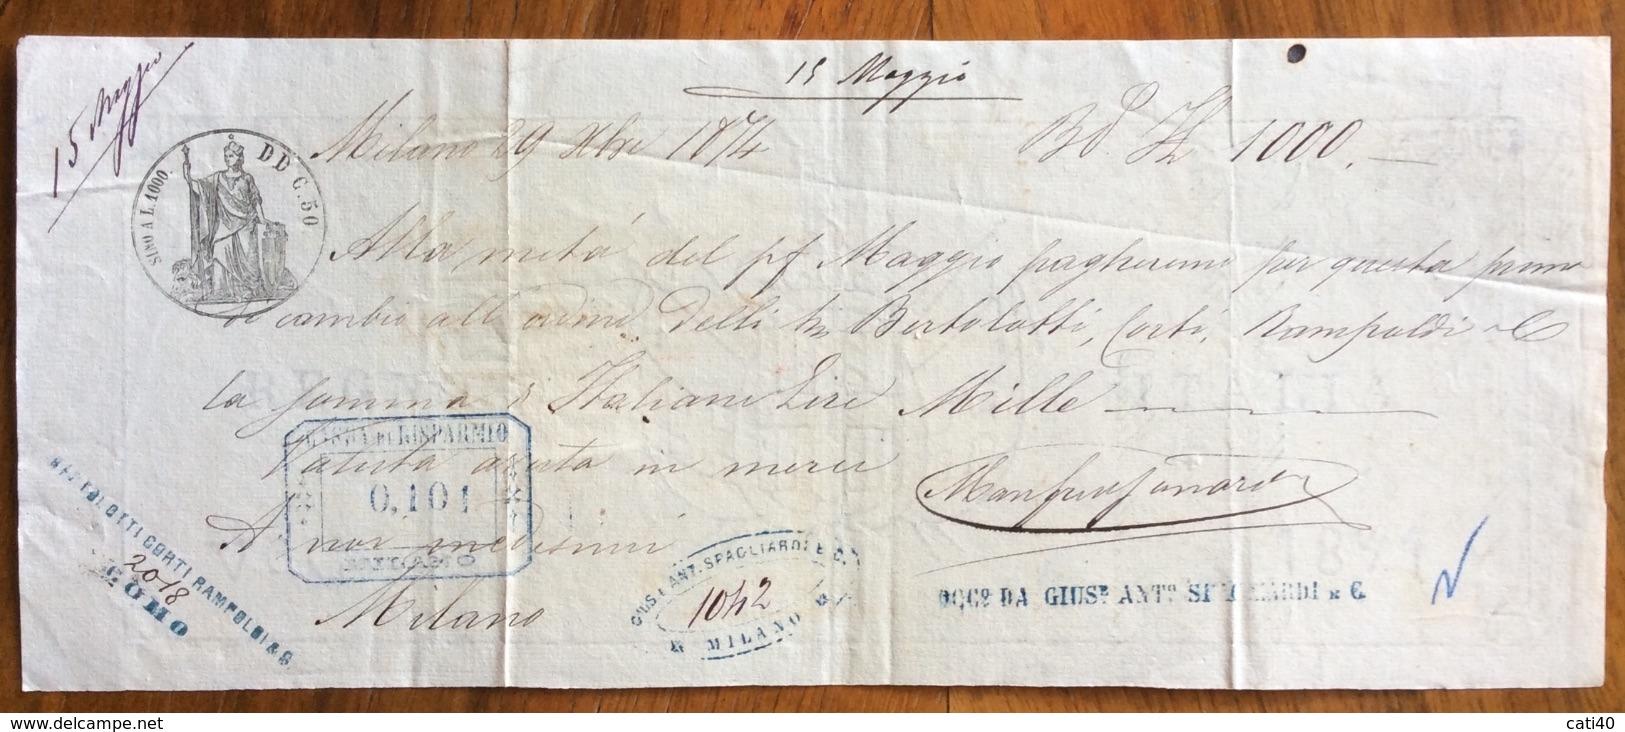 15 Maggio
15 Maggio
SINO A L.1000. DD C.50
Milano 29 Xbre 1874 Bd. It L 1000.—
Alla metá del pf Maggio pagheremo per questa prima
di cambio all' ordine Delli Bertolotti, Corti, Rampoldi & C
la somma di Italiane Lire Mille
Valuta avuta in merci
A noi medesimi
Milano
CASSA DI RISPARMIO
0,101
MILANO
BERTOLOTTI CORTI RAMPOLDI & C
2018
COMO
GIUS. ANT. SPAGLIARDI E C.
1042
MILANO
OCC° DA GIUS.E ANT.° SPAGLIARDI E C.
cati40